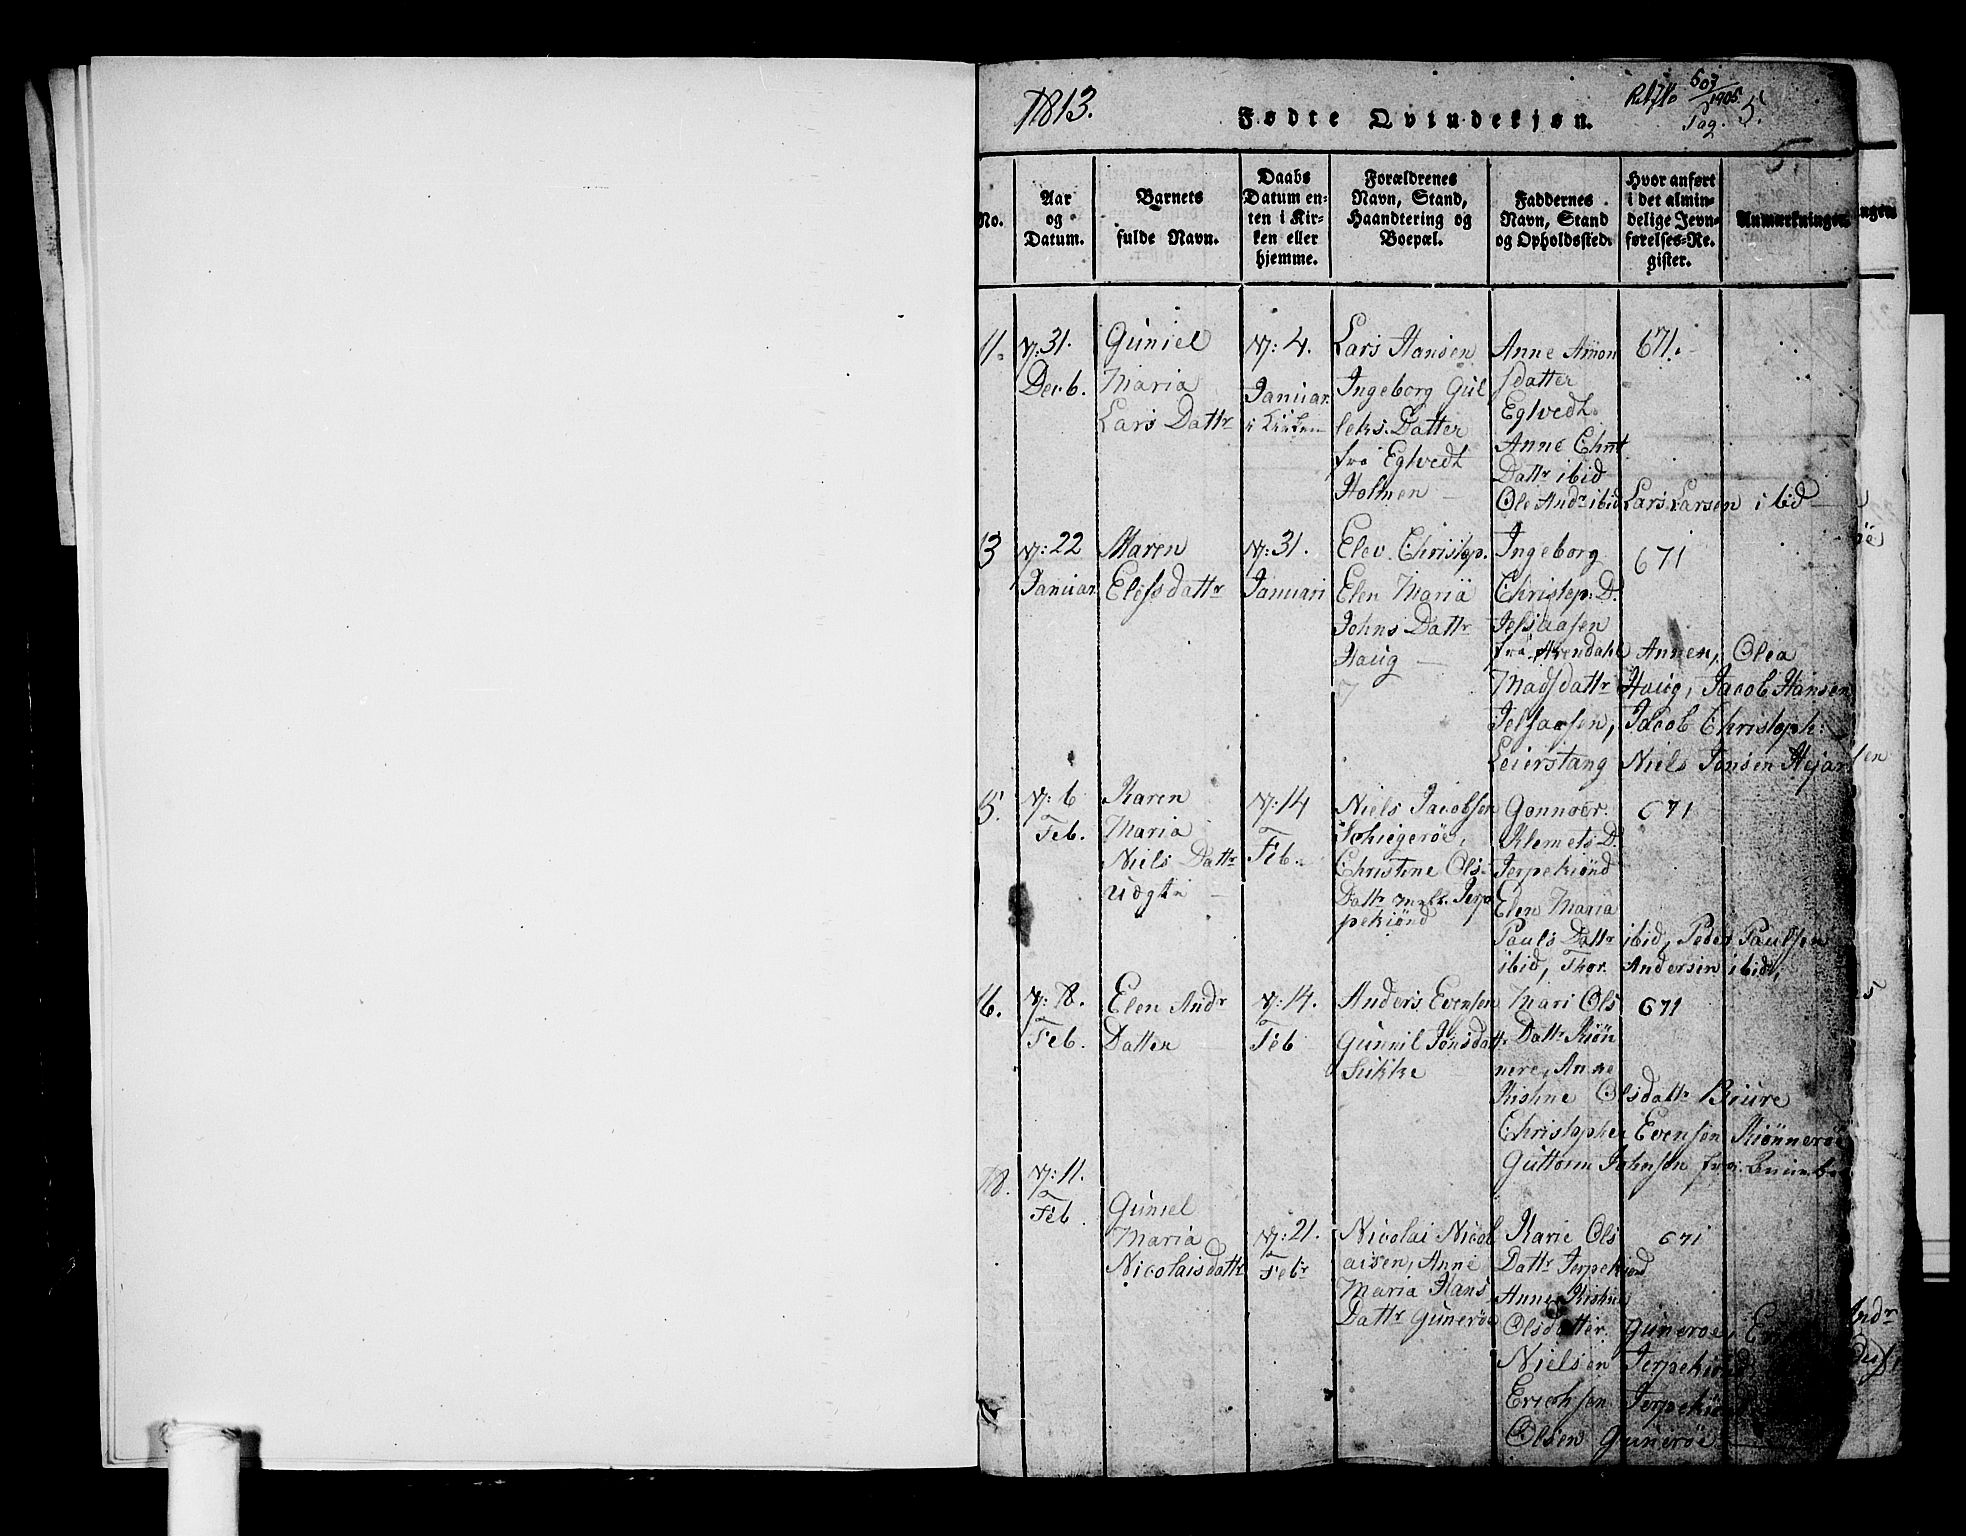 1813.
Fødte Qvindekjøn.
607/1905
Pag. 5.
5.
No.
Aar
og
Datum.
Barnets
fulde Navn.
Daabs
Datum en-
ten i Kir-
ken eller
hjemme.
Forældrenes
Navn, Stand,
Haandtering og
Boepæl.
Faddernes
Navn, Stand
og Opholdssted.
Hvor anført
i det almin-
delige Jevn-
førelses-Re-
gister.
Anmærkninger
11.
N: 31.
Decb.
Guniel
Maria
Lars Dattr
N: 4.
Januar.
i Kirken
Lars Hansen
Ingeborg Gul
leks. Datter
fra Egtvedt
Holmen
Anne Amon
sdatter
Egtvedt
Anne Chrit
Dattr ibid
Ole Andr ibid Lars Larsen ibid
671.
13
N: 22
Januar.
Maren
Elefsdattr
N: 31.
Januari
Elev. Christop.
Elen Maria
Johns Dattr
Haug
Ingeborg
Christop. D.
Jelsaasen
fra Arendahl Annex, Olea
Madsdattr Haug, Jacob Hansen
Jelsaasen, Jacob Christoph:
Leierstang Niels Jonsen
671
15.
N: 6
Feb.
Karen
Maria
Niels Dattr
uægte
N: 14
Feb.
Niels Jacobsen
Schiegerøe,
Christine Ols-
Dattr Jerp
pekiønd
Gonnoer.
Klemets D.
Jerpekiønd
Elen Maria
Pauls Dattr ibid, Peder Paulsen
ibid, Thor. Andersen ibid,
671
16.
N: 8.
Feb.
Elen Andr
Datter
N: 14.
Feb
Anders Evensen
Gunnil Jonsdattr
Sikke
Mari Ols
Dattr Kiøn
nere, Anne
Kistine Olsdattr Biure
Christopher Evensen Kiønnerøe
Guttorm Johnsen fra
671
18.
N: 11.
Feb.
Guniel
Maria
Nicolaisdattr
N: 21.
Febr
Nicolai Nicol
aisen, Anne
Maria Hans
Dattr Gunerøe
Karie Ols
Dattr Jerpekiønd
Anne Kistine
Olsdatter. Gunerøe,
Nielsen Jerpekiønd
Erichsen Jerpekiønd
Olsen Gunerøe
671